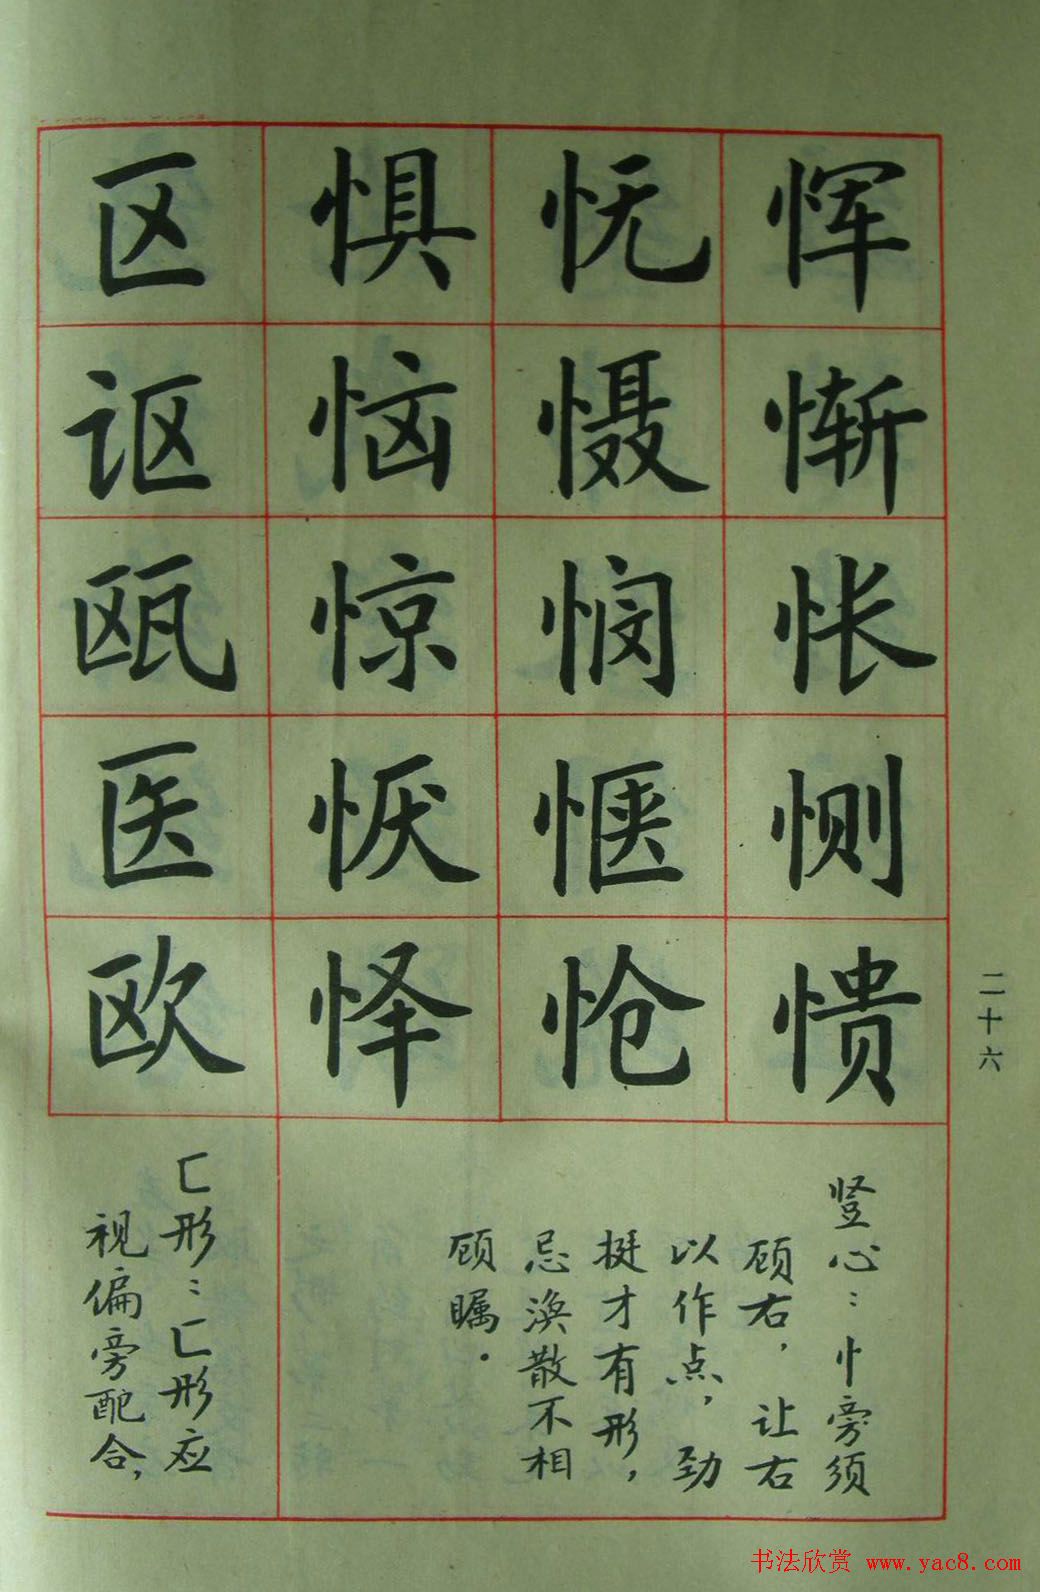 恽惭怅恻愦
怃慑悯惬怆
惧恼惊恹怿
区讴瓯医欧
竖心：忄旁须
顾右，让右
以作点，劲
挺才有形，
忌涣散不相
顾瞩。
匚形：匚形应
视偏旁配合，
二十六
书法欣赏 www.yac8.com